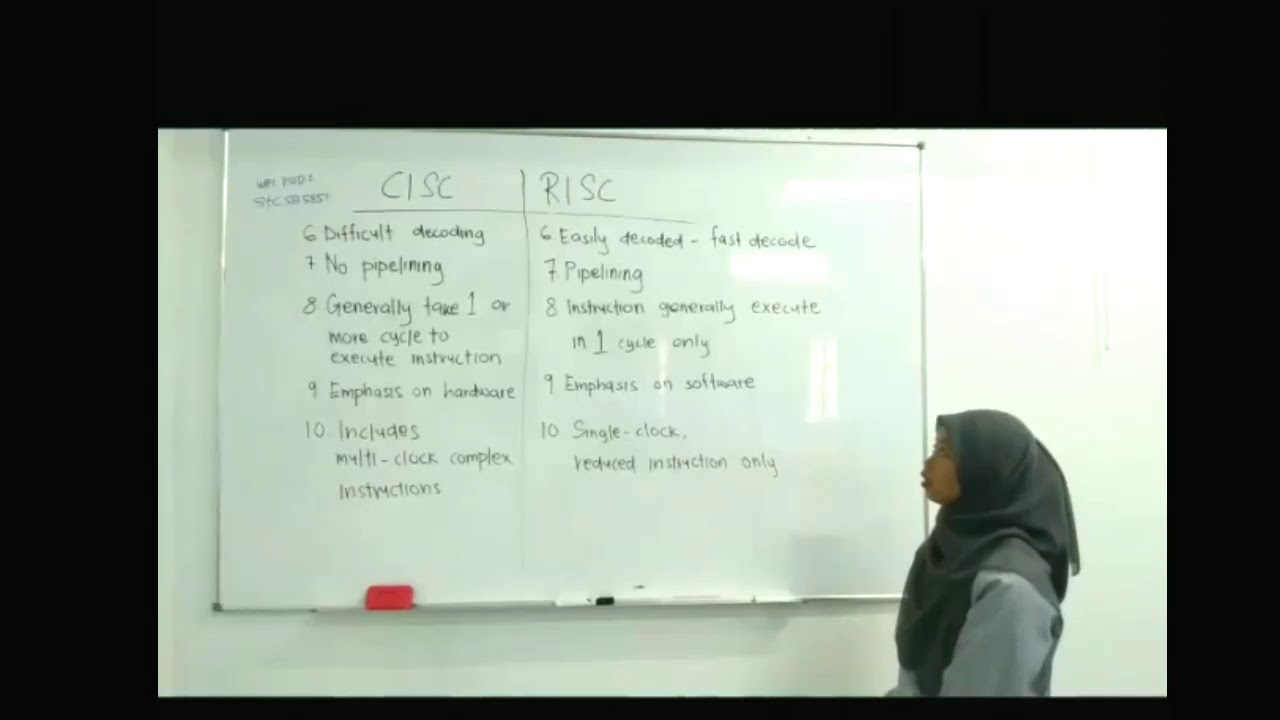 CISC
RISC
6 Difficult decoding
7 No pipelining
8 Generally take 1 or
more cycle to
execute instruction
9 Emphasis on hardware
10 Includes
multi-clock complex
instructions
6 Easily decoded - fast decode
7 Pipelining
8 Instruction generally execute
in 1 cycle only
9 Emphasis on software
10 Single-clock,
reduced instruction only